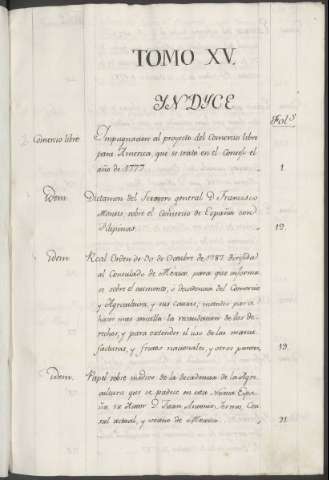 TOMO XV.
YNDYCE
Fol.s
Comercio libre
Impugnacion al proyecto del Comercio libre
para America, que se trató en el Consejo el
año de 1777. 1
Ydem
Dictamen del Tesorero general D. Francisco
Montes sobre el Comercio de España con
Filipinas. 12.
Ydem
Real Orden de de Octubre de 1787. dirigida
al Consulado de Mexico, para que informa
se sobre el aumento, ó decadencia del Comercio
y Agricultura, y sus causas, medios para
hacer mas sencilla la recaudacion de los de-
rechos, y para extender el uso de las manu
facturas, y frutos nacionales, y otros puntos, 19.
Ydem.
Papel sobre de la decadencia de la Agri-
cultura que se padece en esta Nueva Espa-
ña. su Autor D. Juan Con
sul actual, y vecino de Mexico. 21.